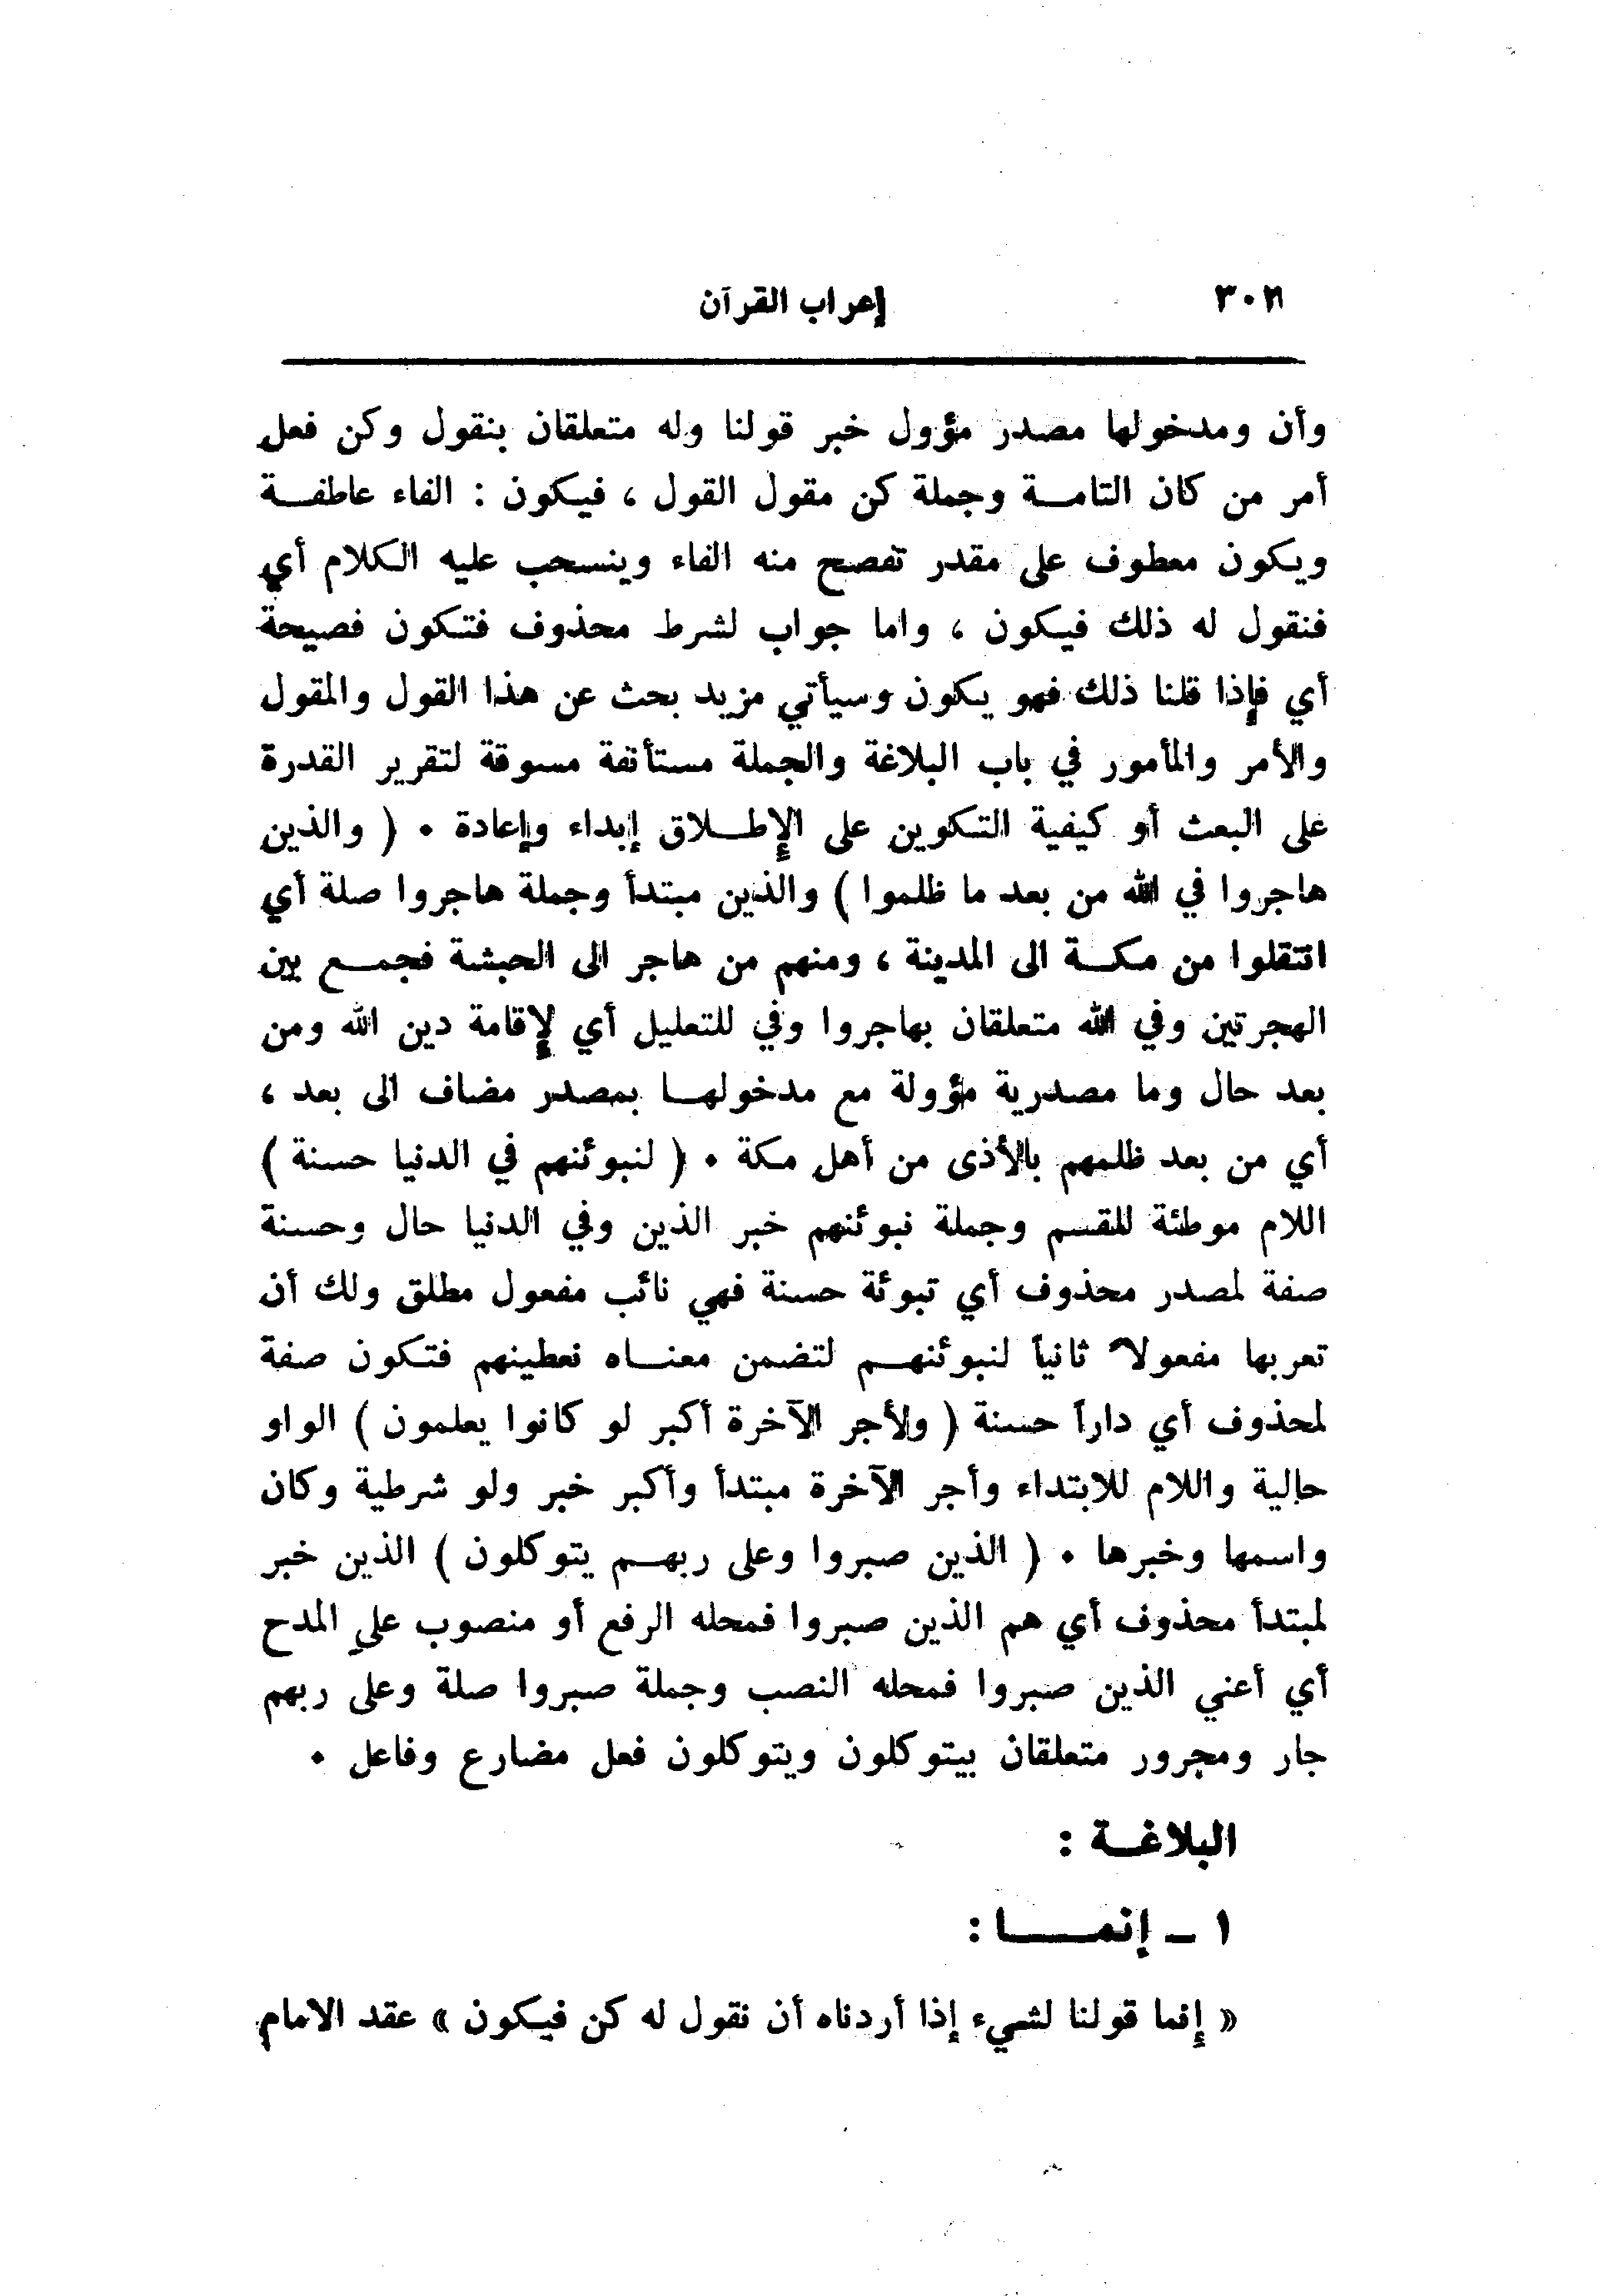 إعراب القرآن
وأن ومدخولها مصدر مؤول خبر قولنا وله متعلقان بنقول وكن فعل
أمر من كان التامــة وجملة كن مقول القول ، فيكون : الفاء عاطفــة
ويكون معطوف على مقدر تفصح منه الفاء وينسحب عليه الكلام أي
فنقول له ذلك فيكون ، واما جواب لشرط محذوف فتكون فصيحة
أي فإذا قلنا ذلك فهو يكون وسيأتي مزيد بحث عن هذا القول والمقول
والأمر والمأمور في باب البلاغة والجملة مستأنفة مسوقة لتقرير القدرة
على البعث أو كيفية التكوين على الإطــلاق إبداء وإعادة . ( والذين
هاجروا في الله من بعد ما ظلموا ) والذين مبتدأ وجملة هاجروا صلة أي
انتقلوا من مكــة الى المدينة ، ومنهم من هاجر الى الحبشة فجمــع بين
الهجرتين وفي الله متعلقان بهاجروا وفي للتعليل أي لإقامة دين الله ومن
بعد حال وما مصدرية مؤولة مع مدخولهــا بمصدر مضاف الى بعد ،
أي من بعد ظلمهم بالأذى من أهل مكة . ( لنبوئنهم في الدنيا حسنة )
اللام موطئة للقسم وجملة نبوئنهم خبر الذين وفي الدنيا حال وحسنة
صفة لمصدر محذوف أي تبوئة حسنة فهي نائب مفعول مطلق ولك أن
تعربها مفعولاً ثانياً لنبوئنهــم لتضمن معنــاه نعطينهم فتكون صفة
لمحذوف أي داراً حسنة ( ولأجر الآخرة أكبر لو كانوا يعلمون ) الواو
حالية واللام للابتداء وأجر الآخرة مبتدأ وأكبر خبر ولو شرطية وكان
واسمها وخبرها . ( الذين صبروا وعلى ربهــم يتوكلون ) الذين خبر
لمبتدأ محذوف أي هم الذين صبروا فمحله الرفع أو منصوب على المدح
أي أعني الذين صبروا فمحله النصب وجملة صبروا صلة وعلى ربهم
جار ومجرور متعلقان بيتوكلون ويتوكلون فعل مضارع وفاعل .
البلاغــة :
١ ــ إنمــــا :
« إنما قولنا لشيء إذا أردناه أن نقول له كن فيكون » عقد الامام